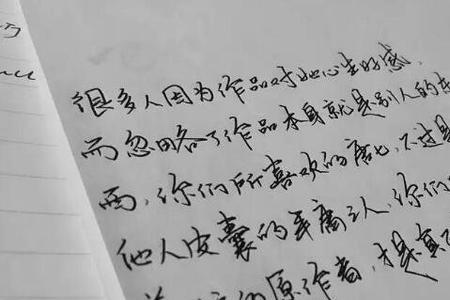 很多人因为作品对她心生好感,
而忽略了作品本身就是别人的
而,你们所喜欢的魔比,不过是
他人皮囊的辛腐之人,你们
的原作者,才是真